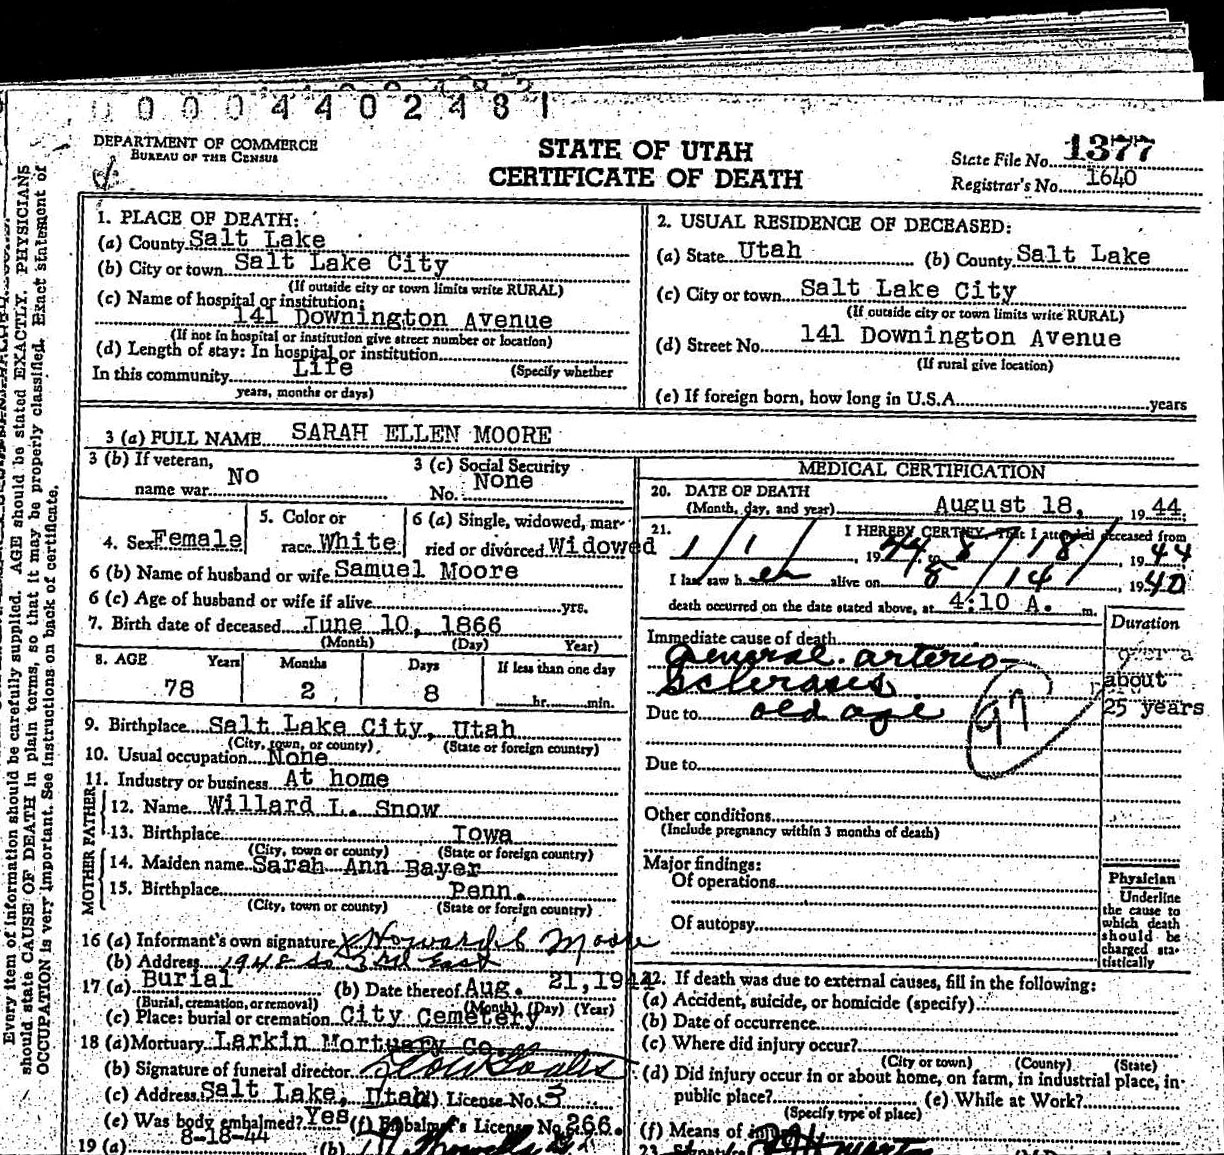 0 0 0 4 4 0 2 4 8 1
DEPARTMENT OF COMMERCE
BUREAU OF THE CENSUS
STATE OF UTAH
CERTIFICATE OF DEATH
State File No. 1377
Registrar's No. 1640
Every item of information should be carefully supplied. AGE should be stated EXACTLY. PHYSICIANS
should state CAUSE OF DEATH in plain terms, so that it may be properly classified. Exact statement of
OCCUPATION is very important. See instructions on back of certificate.
1. PLACE OF DEATH:
(a) County Salt Lake
(b) City or town Salt Lake City
(If outside city or town limits write RURAL)
(c) Name of hospital or institution:
141 Downington Avenue
(If not in hospital or institution give street number or location)
(d) Length of stay: In hospital or institution
In this community Life (Specify whether
years, months or days)
2. USUAL RESIDENCE OF DECEASED:
(a) State Utah (b) County Salt Lake
(c) City or town Salt Lake City
(If outside city or town limits write RURAL)
(d) Street No. 141 Downington Avenue
(If rural give location)
(e) If foreign born, how long in U.S.A. years
3 (a) FULL NAME SARAH ELLEN MOORE
3 (b) If veteran,
name war No
3 (c) Social Security
No. None
4. Sex Female
5. Color or
race White
6 (a) Single, widowed, mar-
ried or divorced Widowed
6 (b) Name of husband or wife Samuel Moore
6 (c) Age of husband or wife if alive yrs.
7. Birth date of deceased June 10, 1866
(Month) (Day) Year)
8. AGE Years Months Days If less than one day
78 2 8 hr. min.
9. Birthplace Salt Lake City, Utah
(City, town, or county) (State or foreign country)
10. Usual occupation None
11. Industry or business At home
FATHER
12. Name Willard L. Snow
13. Birthplace Iowa
(City, town or county) (State or foreign country)
MOTHER
14. Maiden name Sarah Ann Bayer
15. Birthplace Penn.
(City, town or county) (State or foreign country)
16 (a) Informant's own signature x Howard S Moore
(b) Address 1948 So 3rd East
17 (a) Burial (b) Date thereof Aug. 21, 1944
(Burial, cremation, or removal) (Month) (Day) (Year)
(c) Place: burial or cremation City Cemetery
18 (a) Mortuary Larkin Mortuary Co.
(b) Signature of funeral director
(c) Address Salt Lake, Utah License No. 3
(e) Was body embalmed? Yes (f) Embalmer's License No. 266.
19 (a) 8-18-44 (b)
MEDICAL CERTIFICATION
20. DATE OF DEATH
(Month, day, and year) August 18, 1944.
21. I HEREBY CERTIFY, That I attended deceased from
1/1/, 1944 to 8/18/, 1944
I last saw her alive on 8/14/, 1940
death occurred on the date stated above, at 4:10 A. m.
Duration
Immediate cause of death
General arterio-
sclerosis
about
25 years
Due to old age
97
Due to
Other conditions
(Include pregnancy within 3 months of death)
Major findings:
Of operations
Of autopsy
Physician
Underline
the cause to
which death
should be
charged sta-
tistically
22. If death was due to external causes, fill in the following:
(a) Accident, suicide, or homicide (specify)
(b) Date of occurrence
(c) Where did injury occur?
(City or town) (County) (State)
(d) Did injury occur in or about home, on farm, in industrial place, in
public place? (e) While at Work?
(Specify type of place)
(f) Means of injury
23. Signature